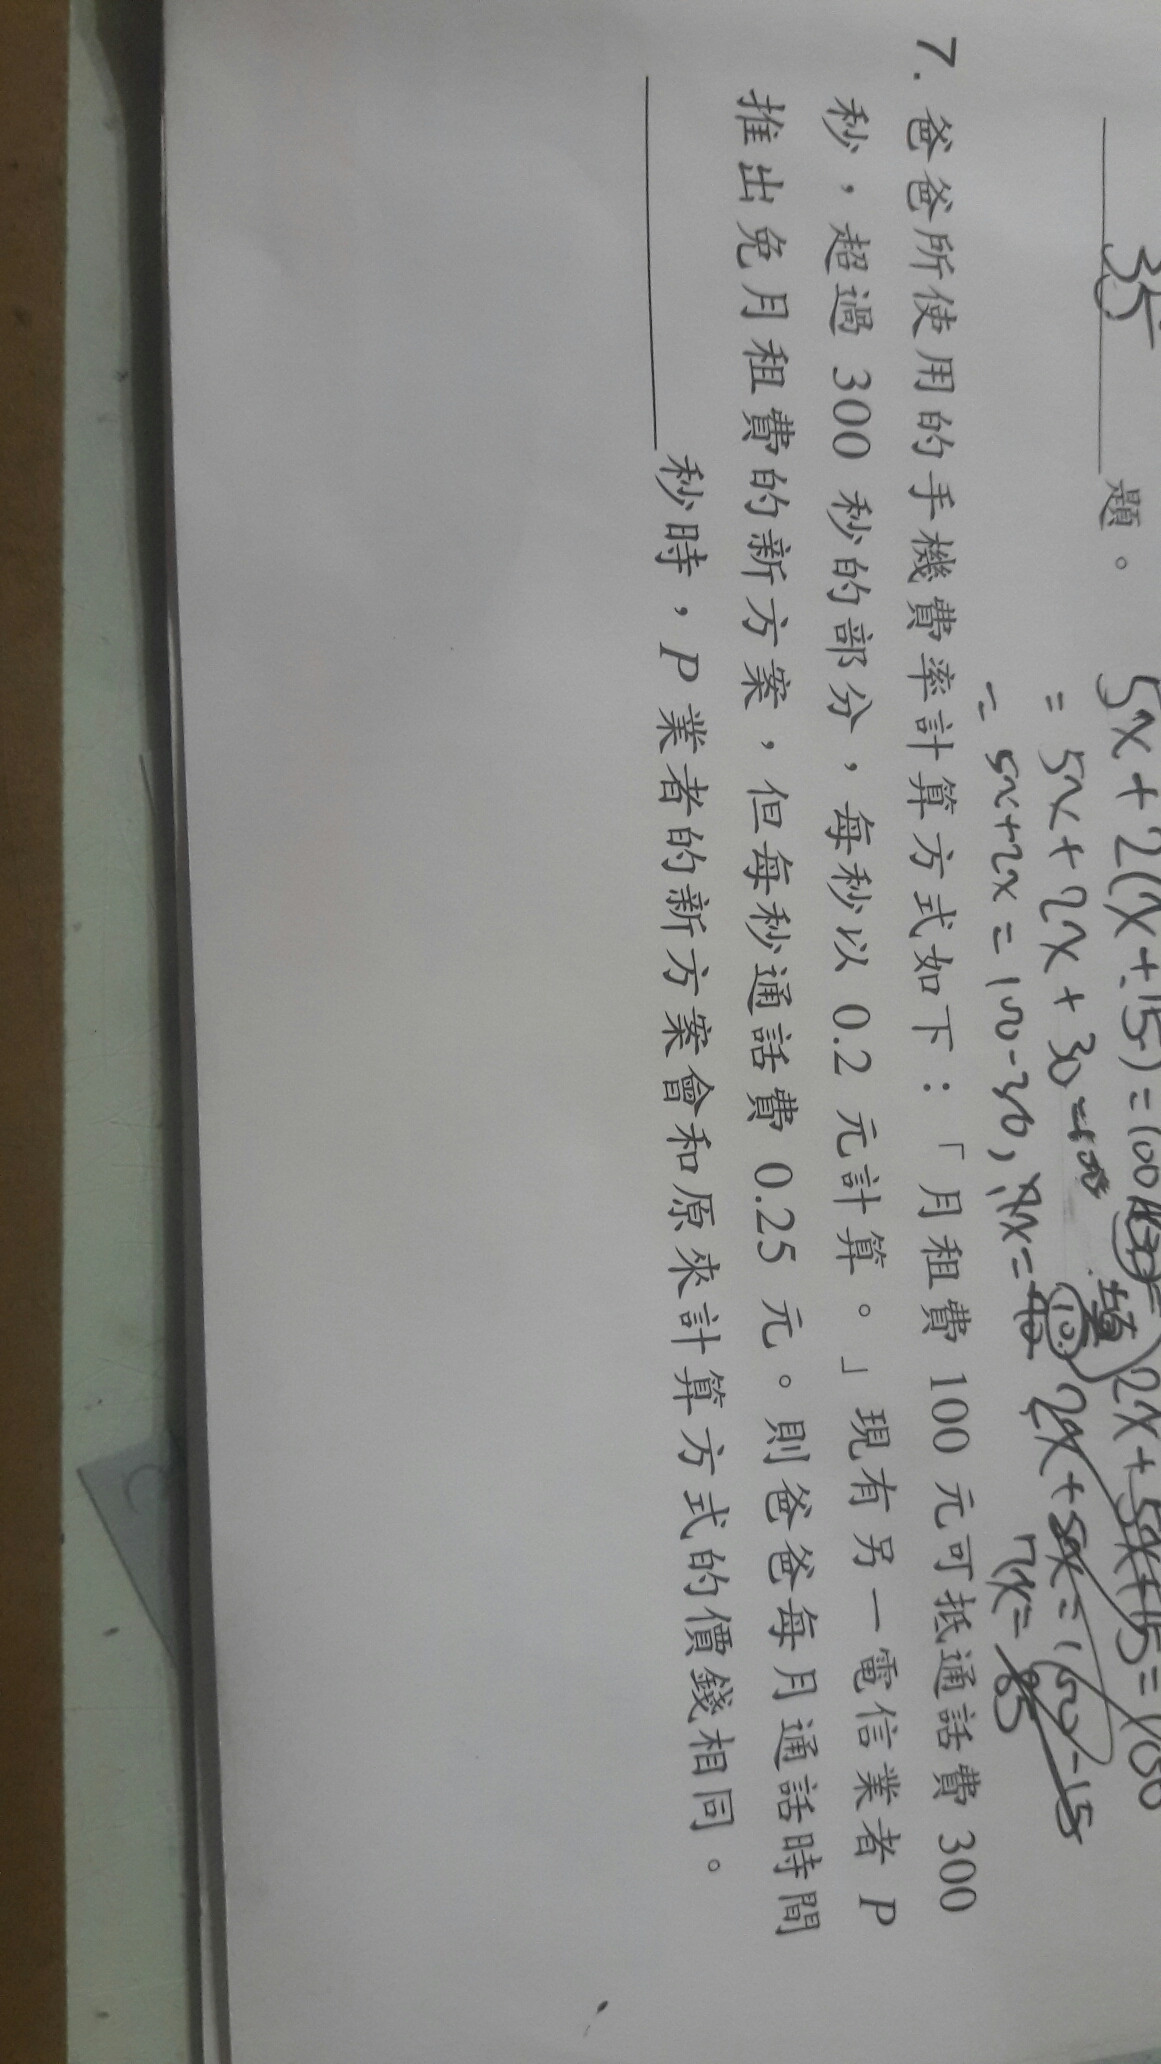 35 題。
5x+2(x+15)=100
=5x+2x+30=100
=5x+2x=100-30,
2x+5x+15=100
2x+5x=100-15
7x=85
7. 爸爸所使用的手機費率計算方式如下：「月租費 100 元可抵通話費 300
秒，超過 300 秒的部分，每秒以 0.2 元計算。」現有另一電信業者 P
推出免月租費的新方案，但每秒通話費 0.25 元。則爸爸每月通話時間
秒時，P 業者的新方案會和原來計算方式的價錢相同。